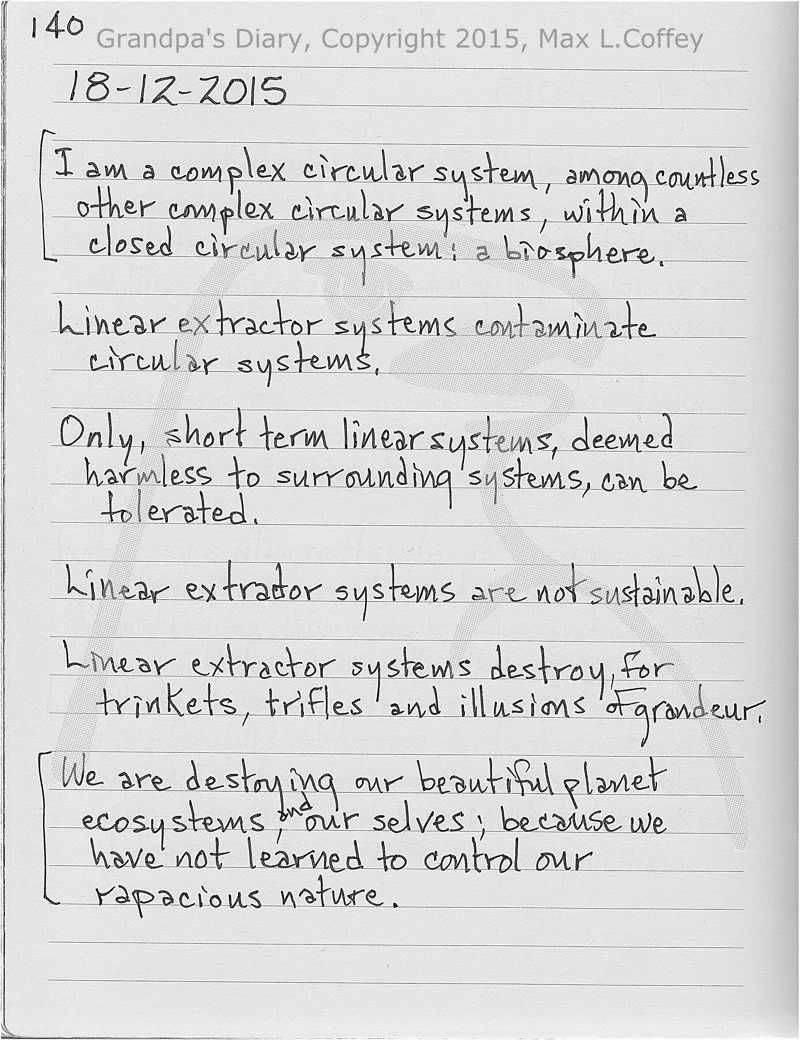 140
Grandpa's Diary, Copyright 2015, Max L.Coffey
18-12-2015
I am a complex circular system, among countless
other complex circular systems, within a
closed circular system: a biosphere.
Linear extractor systems contaminate
circular systems.
Only, short term linear systems, deemed
harmless to surrounding systems, can be
tolerated.
Linear extractor systems are not sustainable.
Linear extractor systems destroy, for
trinkets, trifles and illusions of grandeur.
We are destoying our beautiful planet
ecosystems, and our selves; because we
have not learned to control our
rapacious nature.